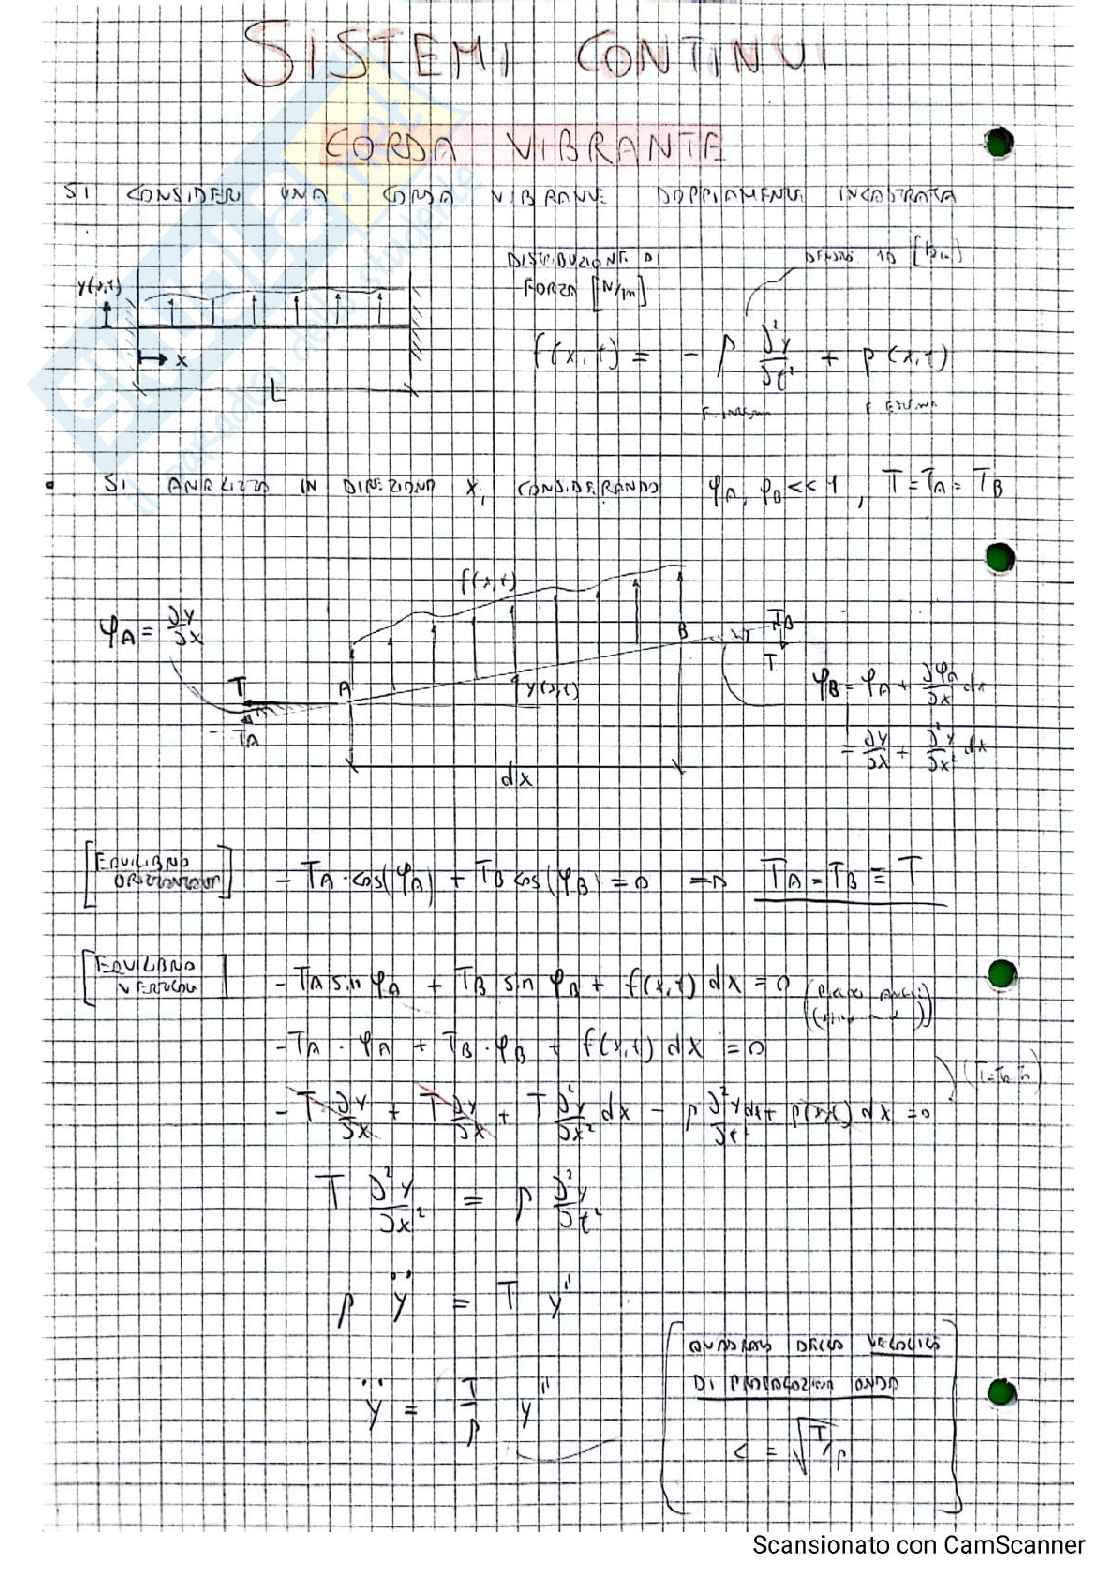 SISTEMI CONTINUI
CORDA VIBRANTE
SI CONSIDERI UNA CORDA VIBRANTE DOPPIAMENTE INCASTRATA
DISTRIBUZIONE DI
FORZA [N/m]
DENSITÀ 1D
y(x,t)
x
L
f(x,t) = - ρ ∂²y/∂t² + p(x,t)
F. INERZIA
F ESTERNA
• SI ANALIZZA IN DIREZIONE X, CONSIDERANDO φA, φB << 1, T = TA = TB
f(x,t)
φA = ∂y/∂x
T
TA
A
y(x,t)
B
TB
T
φB = φA + ∂φA/∂x dx
= ∂y/∂x + ∂²y/∂x² dx
dx
[EQUILIBRIO ORIZZONTALE] - TA · cos(φA) + TB cos(φB) = 0 → TA = TB = T
[EQUILIBRIO VERTICALE] - TA sin φA + TB sin φB + f(x,t) dx = 0
- TA · φA + TB · φB + f(x,t) dx = 0
- T ∂y/∂x + T ∂y/∂x + T ∂²y/∂x² dx - ρ ∂²y/∂t² dx + p(x,t) dx = 0
T ∂²y/∂x² = ρ ∂²y/∂t²
ρ ÿ = T y''
ÿ = T/ρ y''
QUADRATO DELLA VELOCITÀ
DI PROPAGAZIONE ONDA
c = √T/ρ
Scansionato con CamScanner